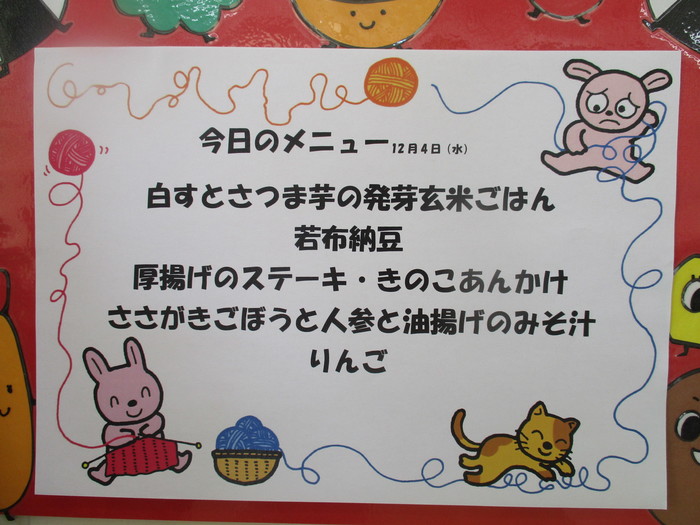 今日のメニュー 12月4日（水）
白すとさつま芋の発芽玄米ごはん
若布納豆
厚揚げのステーキ・きのこあんかけ
ささがきごぼうと人参と油揚げのみそ汁
りんご